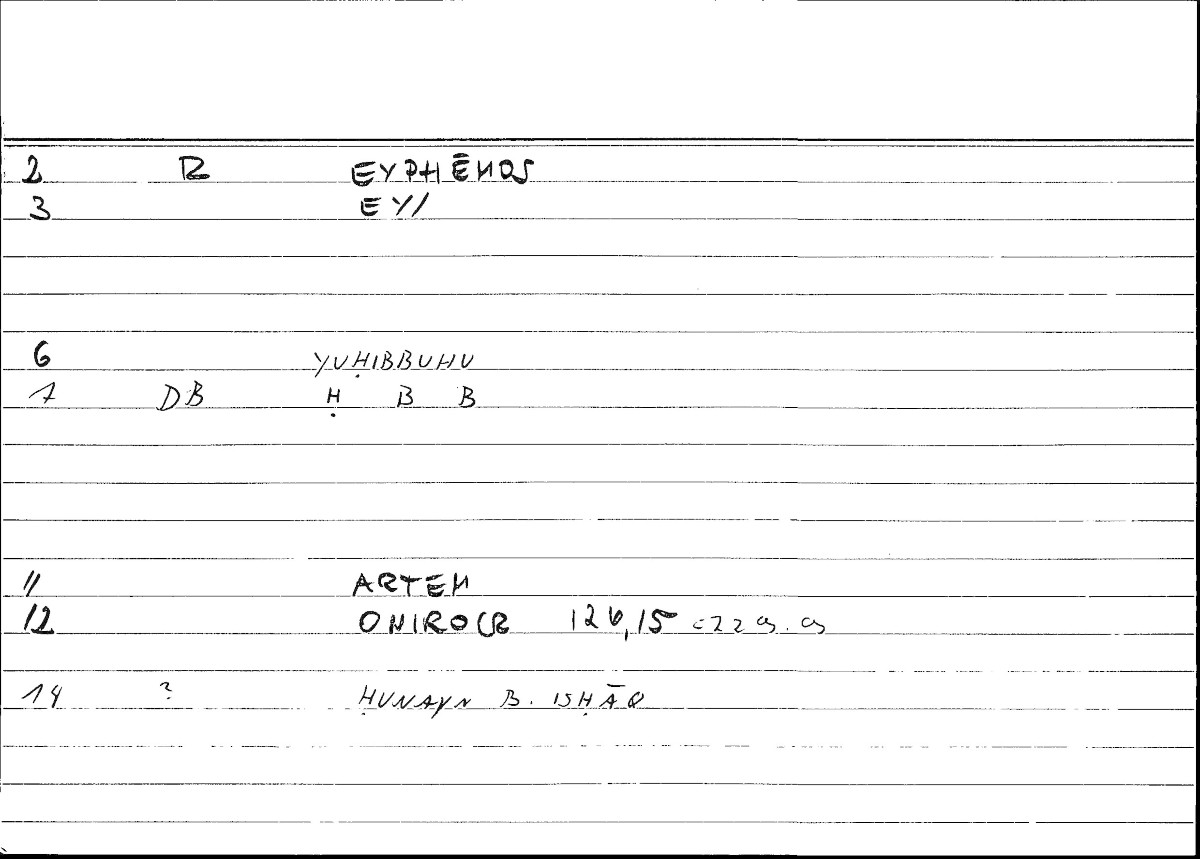 2 R EYPHĒMOS
3 EY/
6 YUḤIBBUHU
7 DB Ḥ B B
11 ARTEM
12 ONIROCR 126,15
14 ? ḤUNAYN B. ISḤĀQ